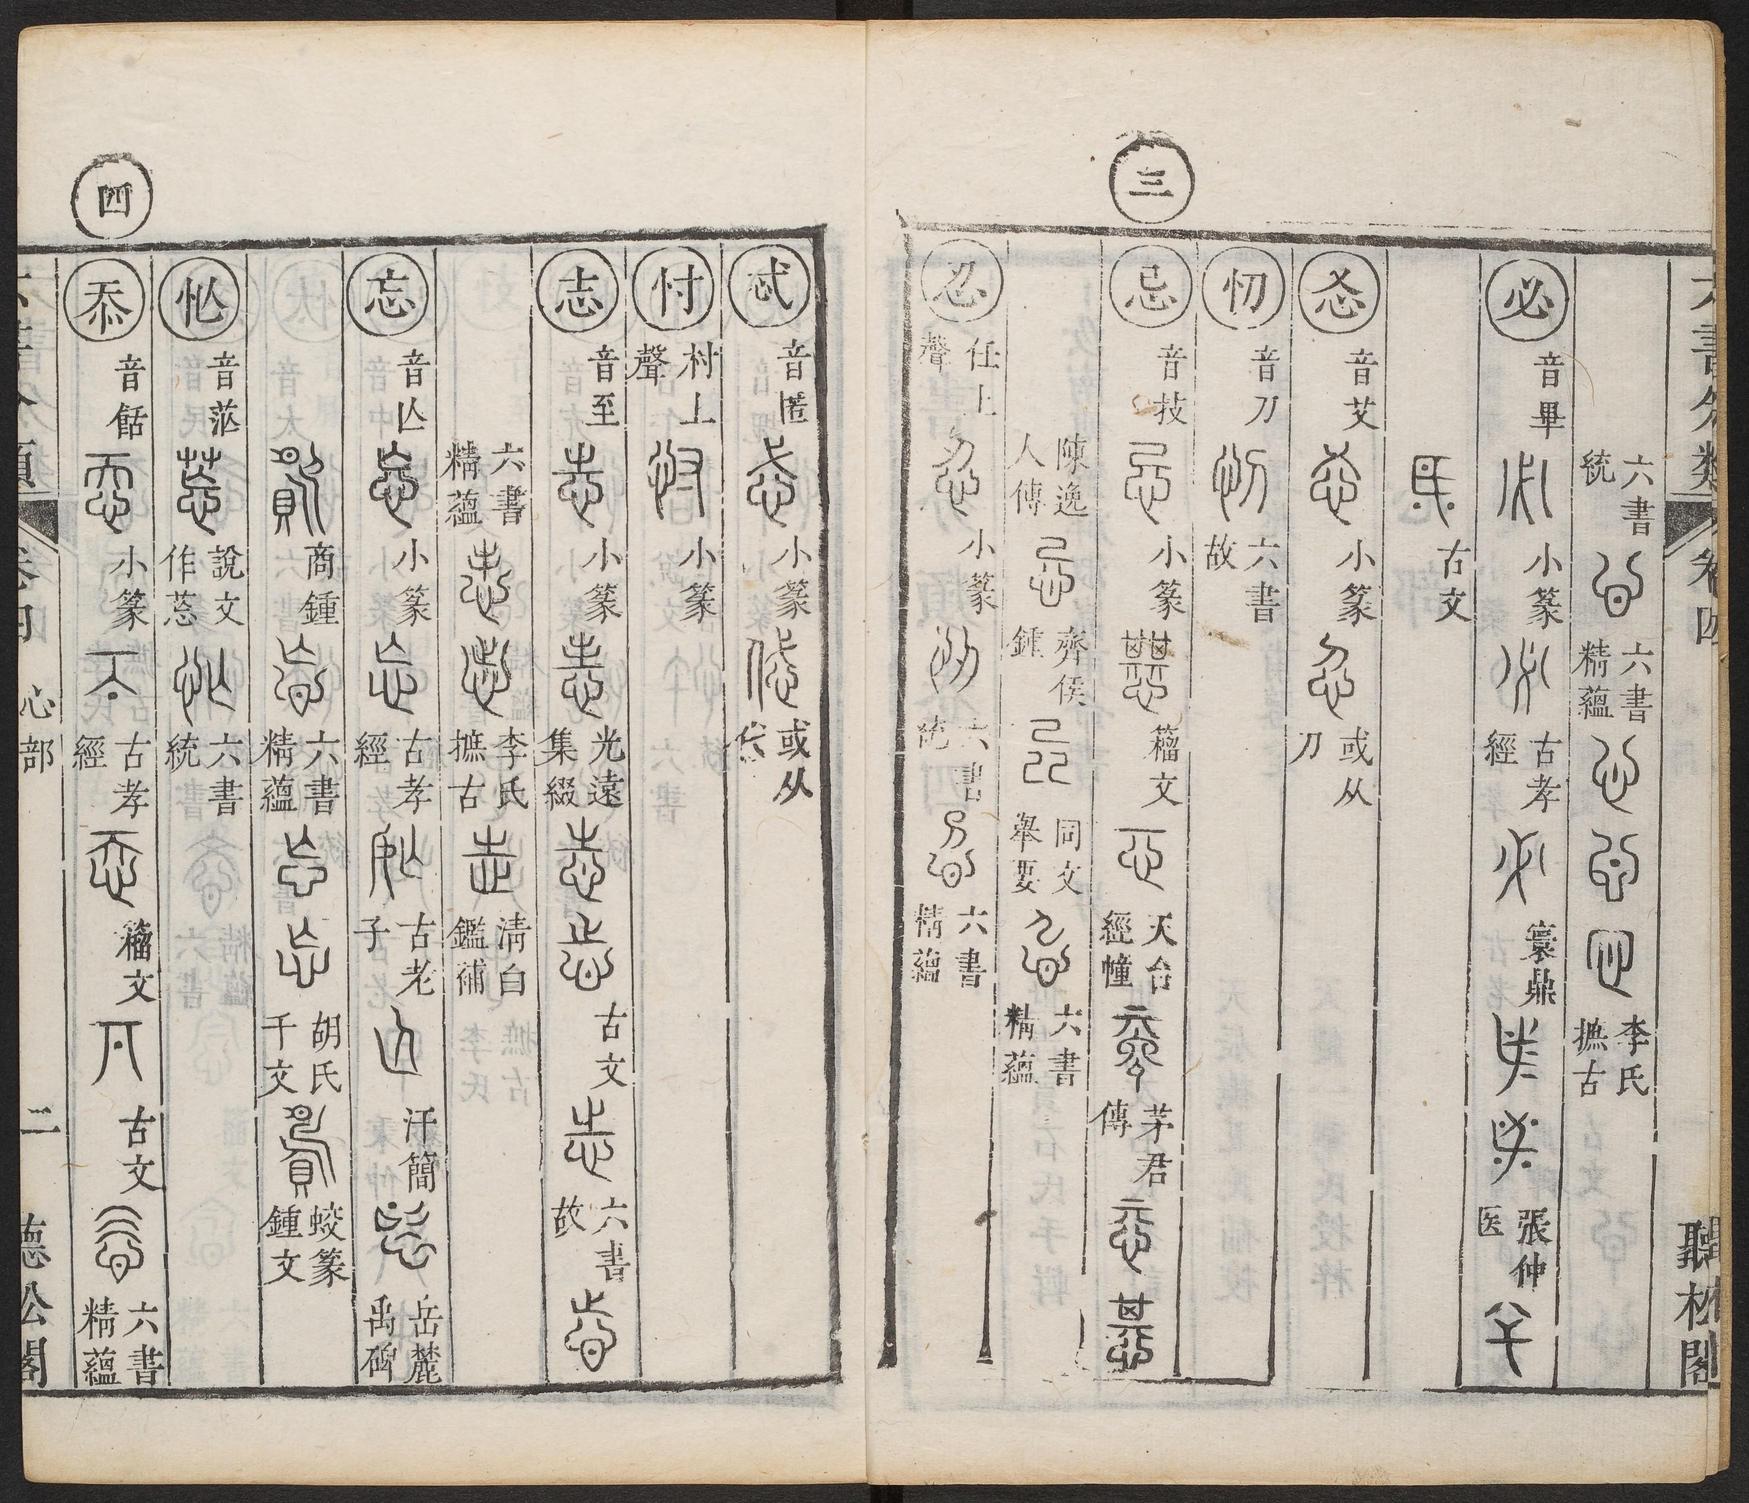 三
六書分類 卷四 聽松閣
六書統 六書精蘊 李氏摭古
必 音畢 小篆 古孝經 寰鼎 張仲医
古文
㣻 音艾 小篆 或从刀
忉 音刀 六書故
忌 音技 小篆 籀文 天台經幢 茅君傳
陳逸人傳 齊侯鍾 同文舉要 六書精蘊
忍 任上聲 小篆 六書統 六書精蘊
四
忒 音慝 小篆 或从
忖 村上聲 小篆
志 音至 小篆 光遠集綴 古文 六書故
六書精蘊 李氏摭古 清白鑑補
忘 音亾 小篆 古孝經 古老子 汗簡 岳麓禹碑
商鍾 六書精蘊 胡氏千文 蛟篆鍾文
音茫 說文作 六書統
忝 音餂 小篆 古孝經 籀文 古文 六書精蘊
卷四 心部 二